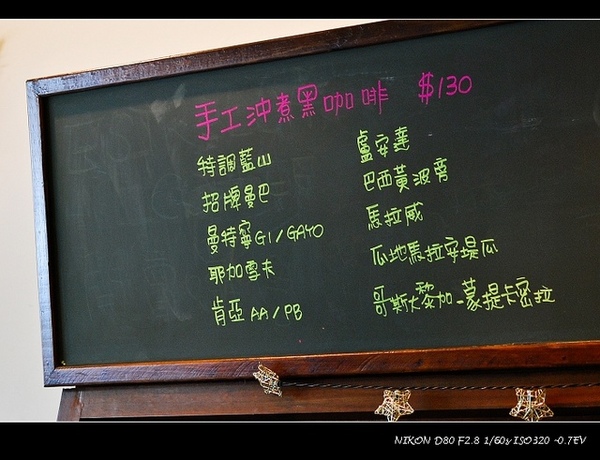 手工沖煮黑咖啡 $130
特調藍山
招牌曼巴
曼特寧G1/GAYO
耶加雪夫
肯亞AA/PB
盧安達
巴西黃波旁
馬拉威
瓜地馬拉安堤瓜
哥斯大黎加-蒙提卡密拉
NIKON D80 F2.8 1/60s ISO320 -0.7EV